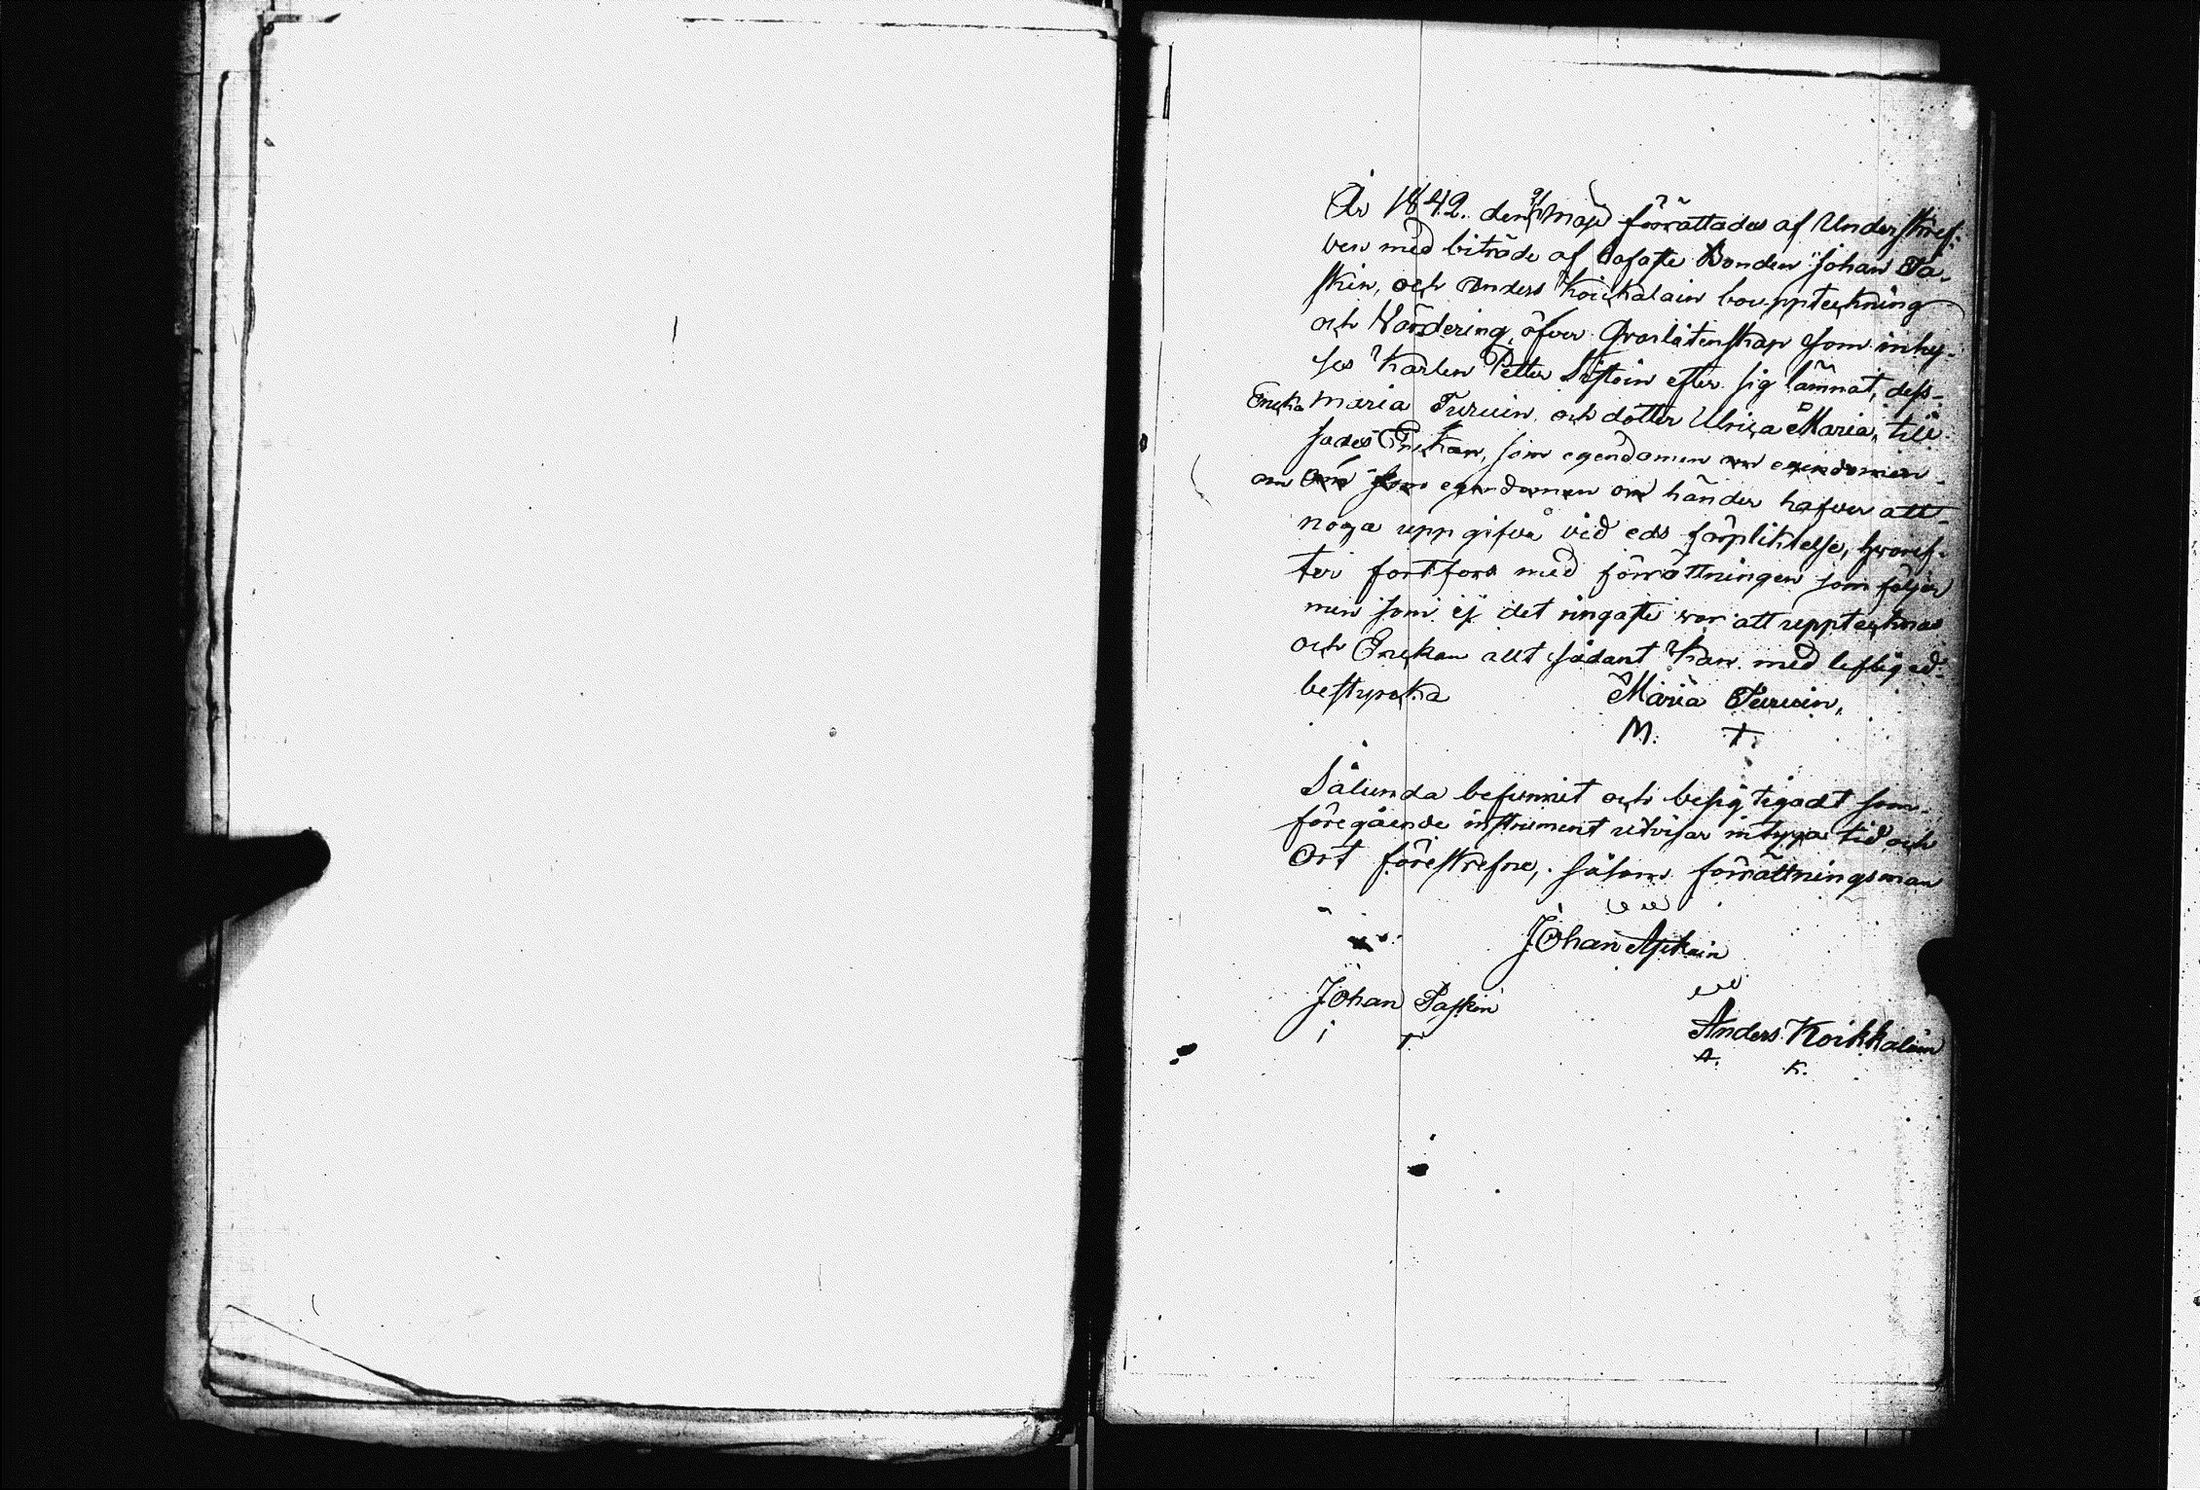 År 1842. den 9/ Maji förrättades af Underskref-
ven med biträde af Bofaste Bonden Johan Pa-
skin, och Anders Koickalain bouppteckning
och Värdering, öfver Qvarlåtenskap som inhy-
ses Karlen Petter efter sig lämnat, dess
Encka Maria Turuin och dotter Ulrica Maria, till
sades Enckan, som egendomen
om händer hafver att
noga uppgifva vid eds förpliktelse, hvaref-
ter fortfors med förrättningen som följer
men som ej det ringaste war att uppteckna
och Enckan allt sådant kan med liflig ed
bestyrcka Maria Turuin,
M. T.
Sålunda befunnit och besigtigadt som
föregående instrument utvisar intyga tid och
Ort föreskrefne, såsom förrättningsman
Johan
Johan Paskin
i P
Anders Koikkalain
A. K.